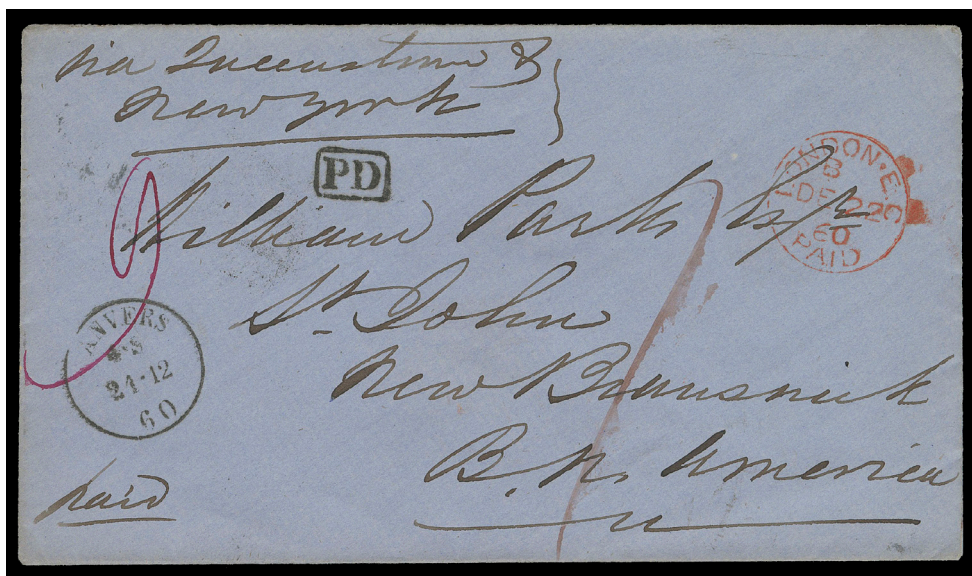 via Queenstown &
New York
PD
LONDON·E.C
B
DE 22
60
PAID
William Parks Esqr
St. John
New Brunswick
B. N. America
ANVERS
21·12
60
paid